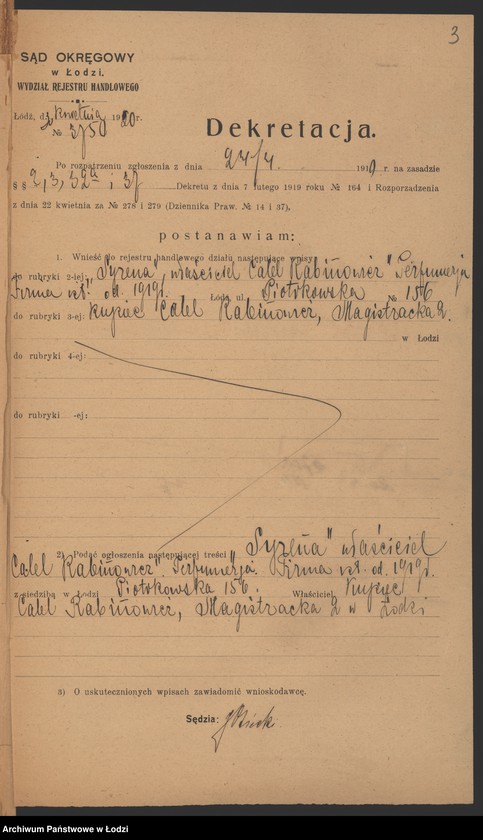 3
SĄD OKRĘGOWY
w Łodzi.
WYDZIAŁ REJESTRU HANDLOWEGO
Łódź, d. kwietnia 1920r.
№ 3750
Dekretacja.
Po rozpatrzeniu zgłoszenia z dnia 24/4 1919 r. na zasadzie
§ § 2, 3, 32a i 37 Dekretu z dnia 7 lutego 1919 roku № 164 i Rozporządzenia
z dnia 22 kwietnia za № 278 i 279 (Dziennika Praw. № 14 i 37).
postanawiam:
1. Wnieść do rejestru handlowego działu następujące wpisy
do rubryki 2-iej: „Syrena" właściciel Calel Rabinowicz" Perfumerja
Firma ist. od. 1919 r. Łódź, ul. Piotrkowska № 156
do rubryki 3-ej: Kupiec Calel Rabinowicz, Magistracka 2.
w Łodzi
do rubryki 4-ej:
do rubryki -ej:
2) Podać ogłoszenia następującej treści „Syrena" właściciel
Calel Rabinowicz" Perfumerja. Firma ist. od. 1919 r.
z siedzibą w Łodzi Piotrkowska 156. Właściciel Kupiec
Calel Rabinowicz, Magistracka 2 w Łodzi
3) O uskutecznionych wpisach zawiadomić wnioskodawcę.
Sędzia:
Archiwum Państwowe w Łodzi